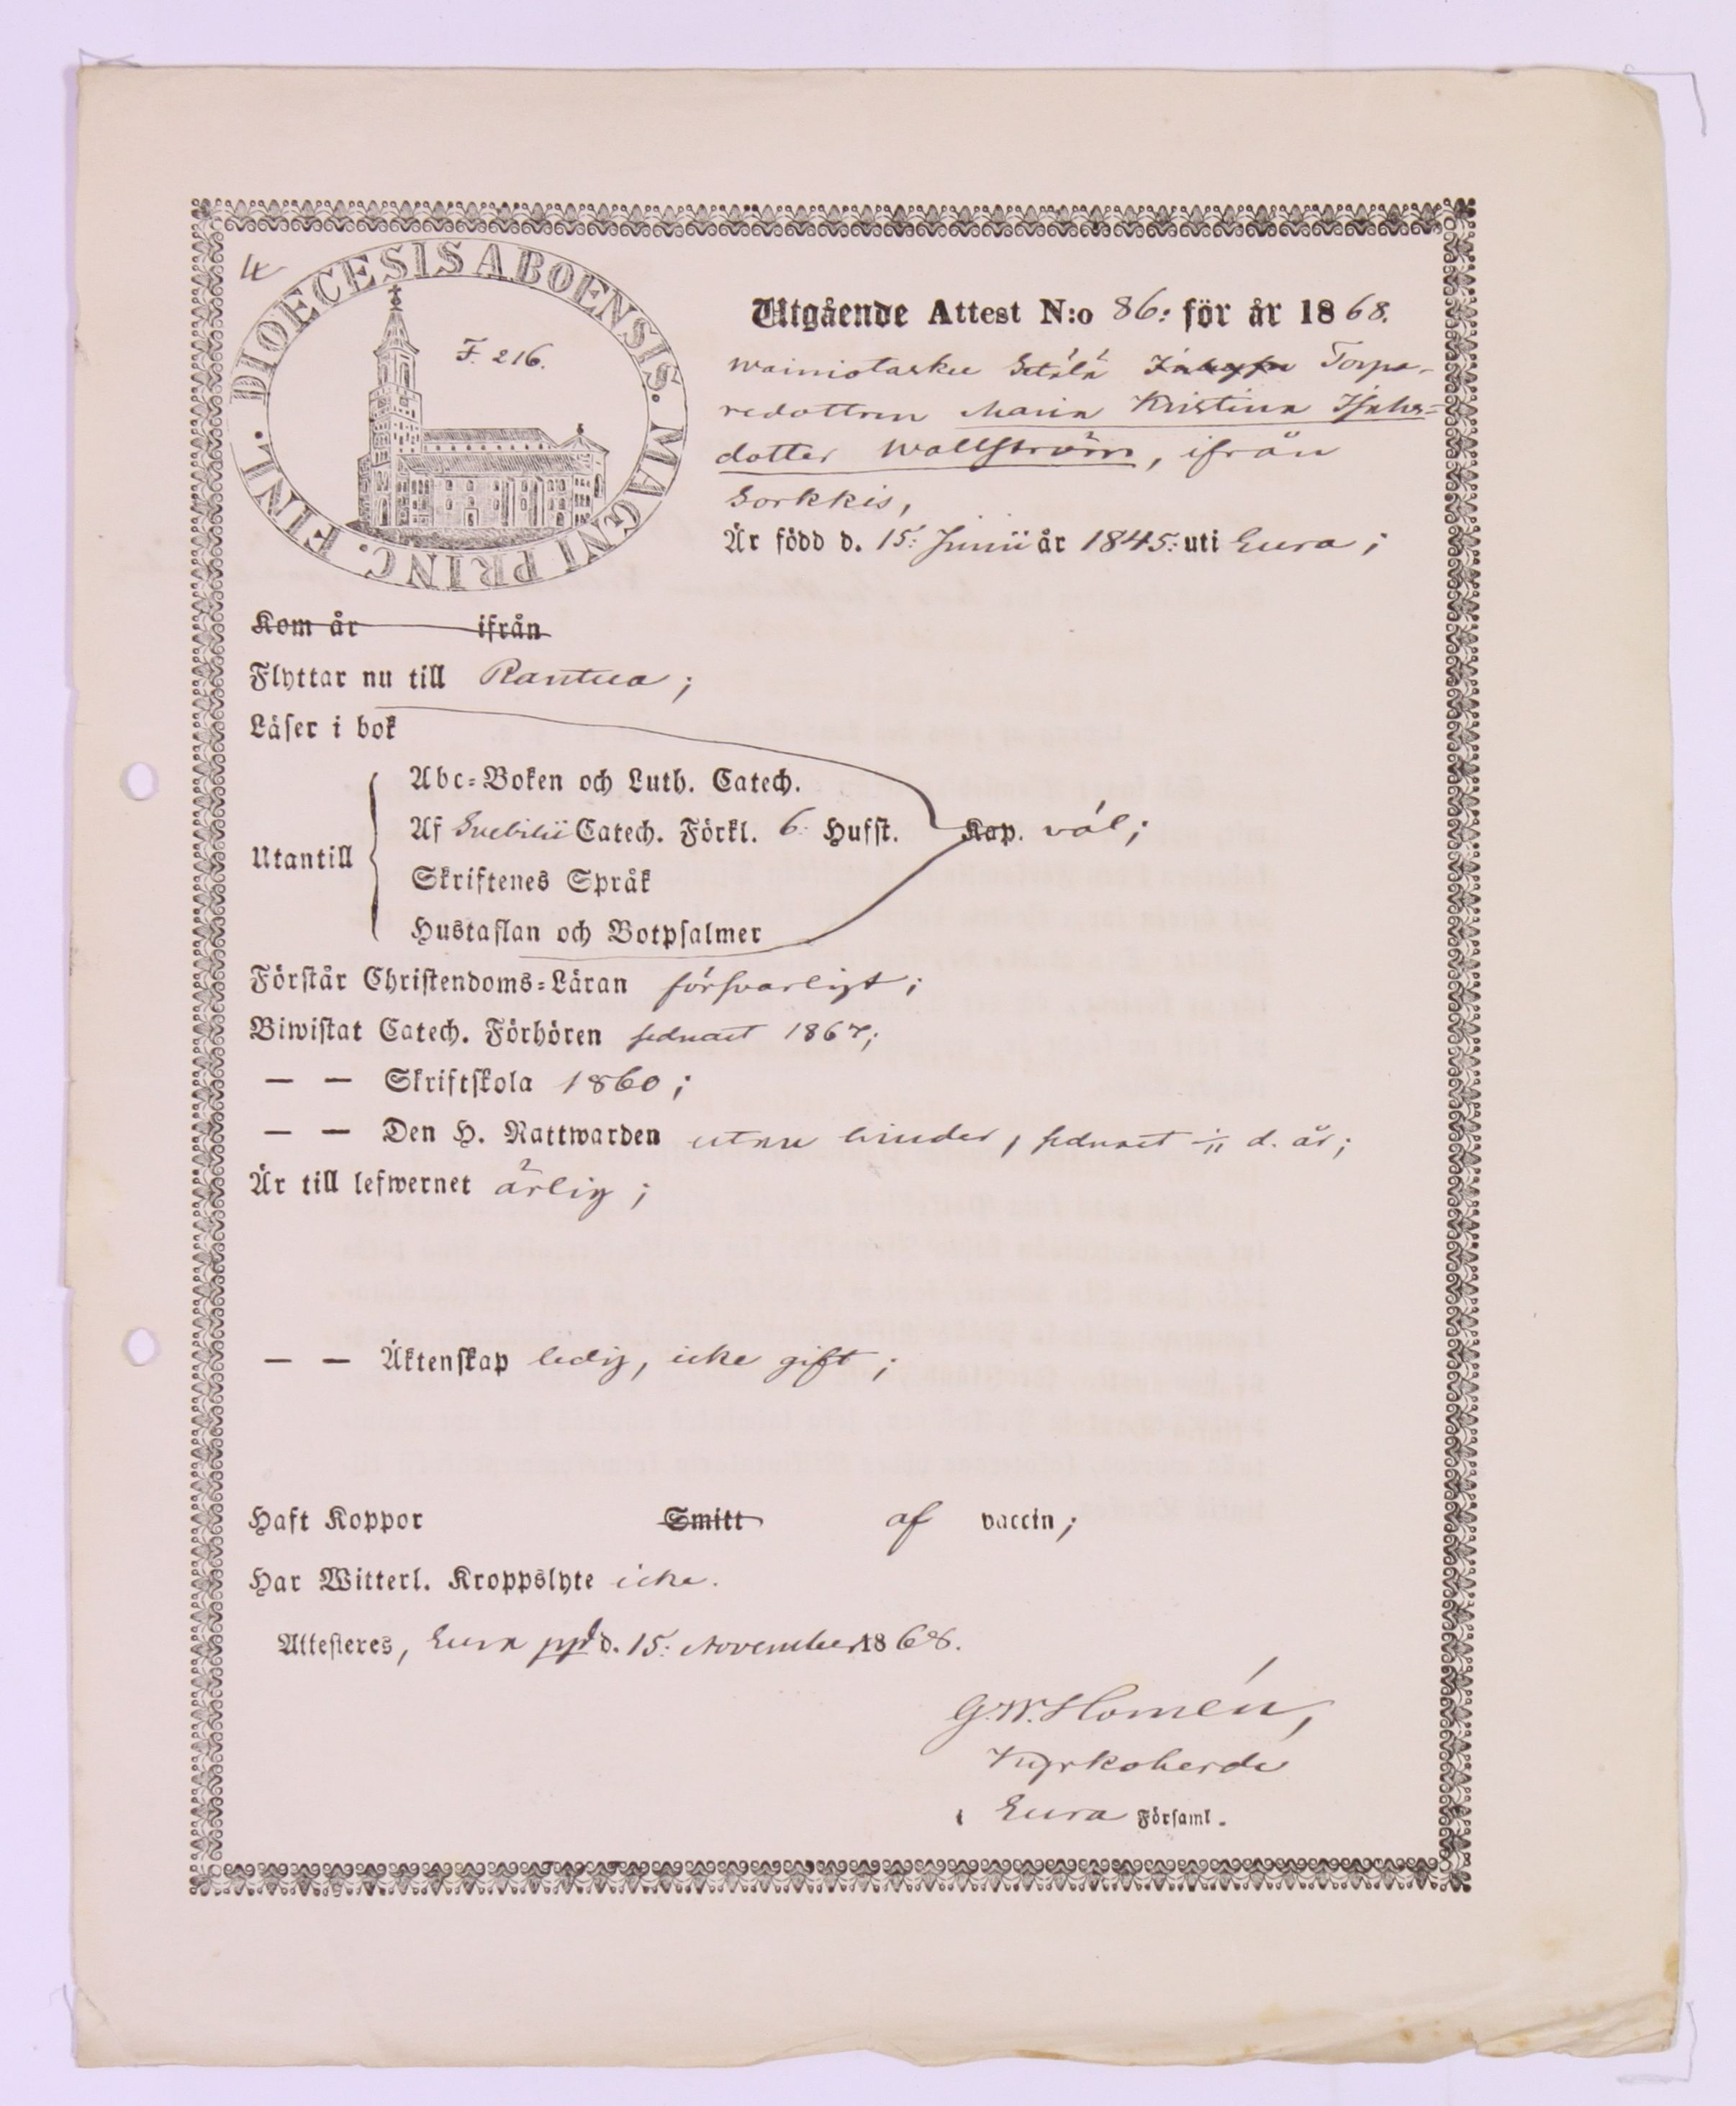 DIOECESIS ABOENSIS. MAGNI PRINC. FINL.
F. 216.
Utgående Attest N:o 86: för år 1868.
Torpa-
redottren Maria Kristina Isaks-
dotter Wallström, ifrån
Sorkkis,
Är född d. 15: Junii år 1845: uti Eura;
Kom år ifrån
Flyttar nu till Rantua;
Läser i bok
Utantill
Abc-Boken och Luth. Catech.
Af Svebilii Catech. Förkl. 6: Hufst. Kap. väl;
Skriftenes Språk
Hustaflan och Botpsalmer
Förstår Christendoms-Läran försvarligt;
Biwistat Catech. Förhören sednast 1867;
— — Skriftskola 1860;
— — Den H. Nattwarden utan hinder, sednast 1/11 d. år;
Är till lefwernet ärlig;
— — Äktenskap ledig, icke gift;
Haft Koppor Smitt af vaccin;
Har Witterl. Kroppslyte icke.
Attesteres, Eura ppd d. 15: November 1868.
G. W. Homén,
Kyrkoherde
i Eura Församl.